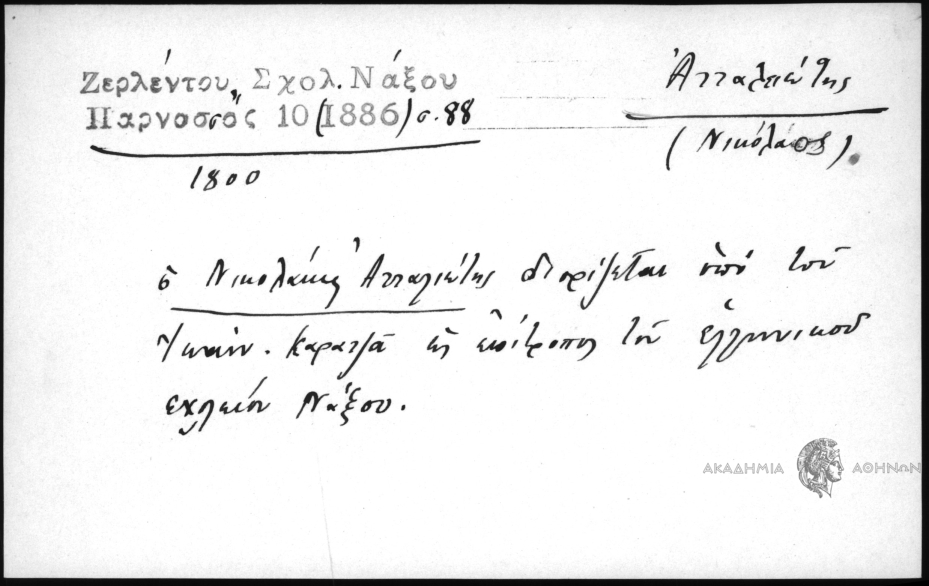 Ζερλέντου, Σχολ. Νάξου
Παρνασσός 10 (1886) σ. 88
1800
Ἀτταλιώτης
(Νικόλαος)
ὁ Νικολάκης Ἀτταλιώτης διορίζεται ὑπὸ τοῦ
Ἰωάν. Καρατζᾶ ὡς ἐπίτροπος τοῦ ἑλληνικοῦ
σχολείου Νάξου.
ΑΚΑΔΗΜΙΑ ΑΘΗΝΩΝ